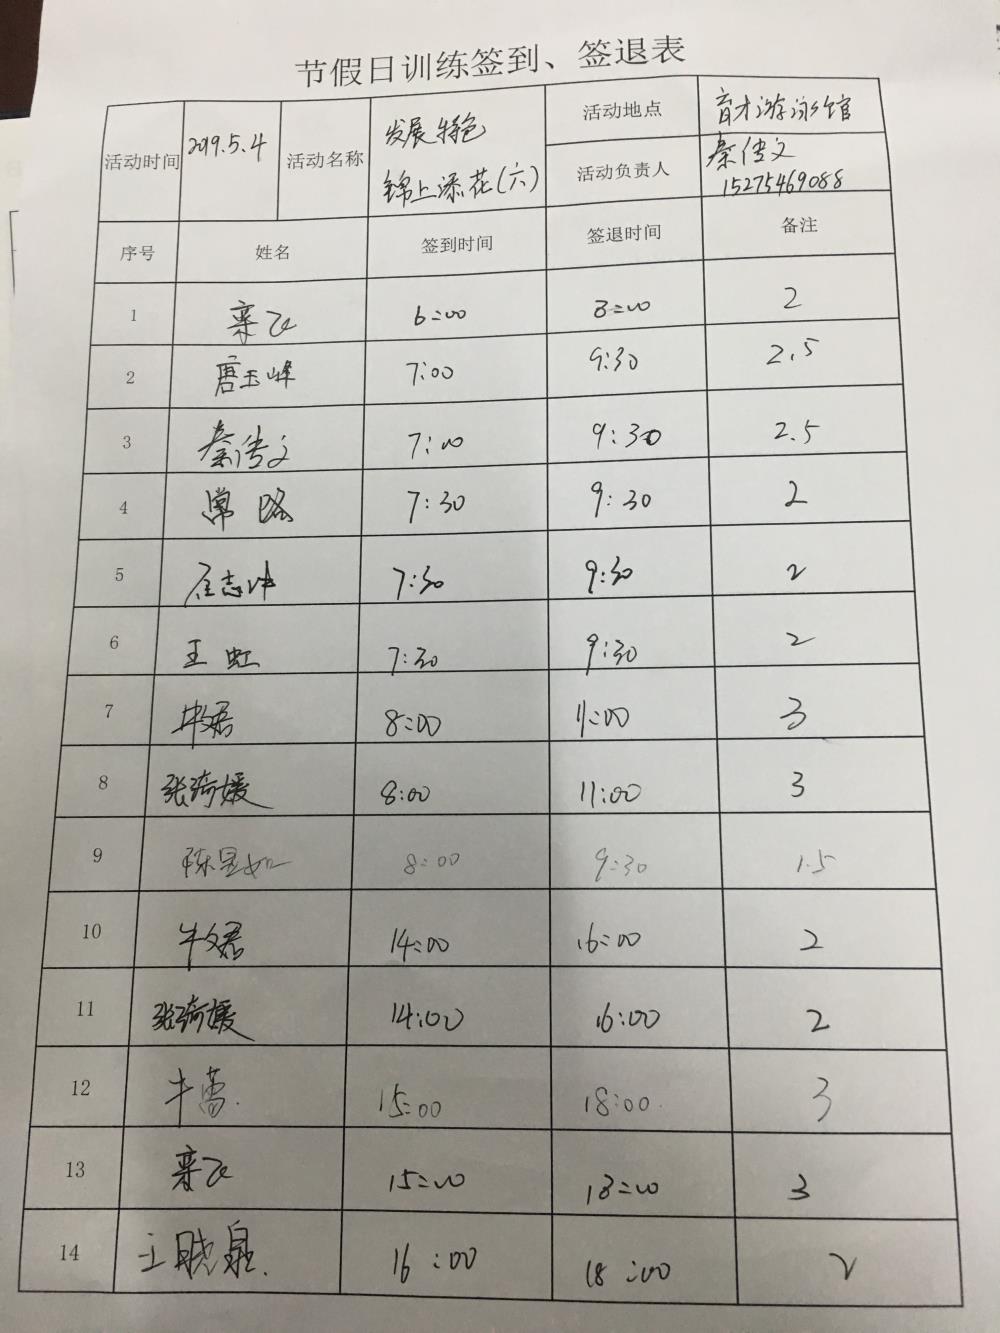 节假日训练签到、签退表
活动时间 2019.5.4 活动名称 发展特色 锦上添花(六) 活动地点 育才游泳馆
活动负责人 秦传文 15275469088
序号 姓名 签到时间 签退时间 备注
1 栾飞 6:00 8:00 2
2 唐玉峰 7:00 9:30 2.5
3 秦传文 7:00 9:30 2.5
4 常 7:30 9:30 2
5 志坤 7:30 9:30 2
6 王虹 7:30 9:30 2
7 牛文君 8:00 11:00 3
8 张琦媛 8:00 11:00 3
9 陈昱如 8:00 9:30 1.5
10 牛文君 14:00 16:00 2
11 张琦媛 14:00 16:00 2
12 牛蕾 15:00 18:00 3
13 栾飞 15:00 18:00 3
14 王晓泉 16:00 18:00 2